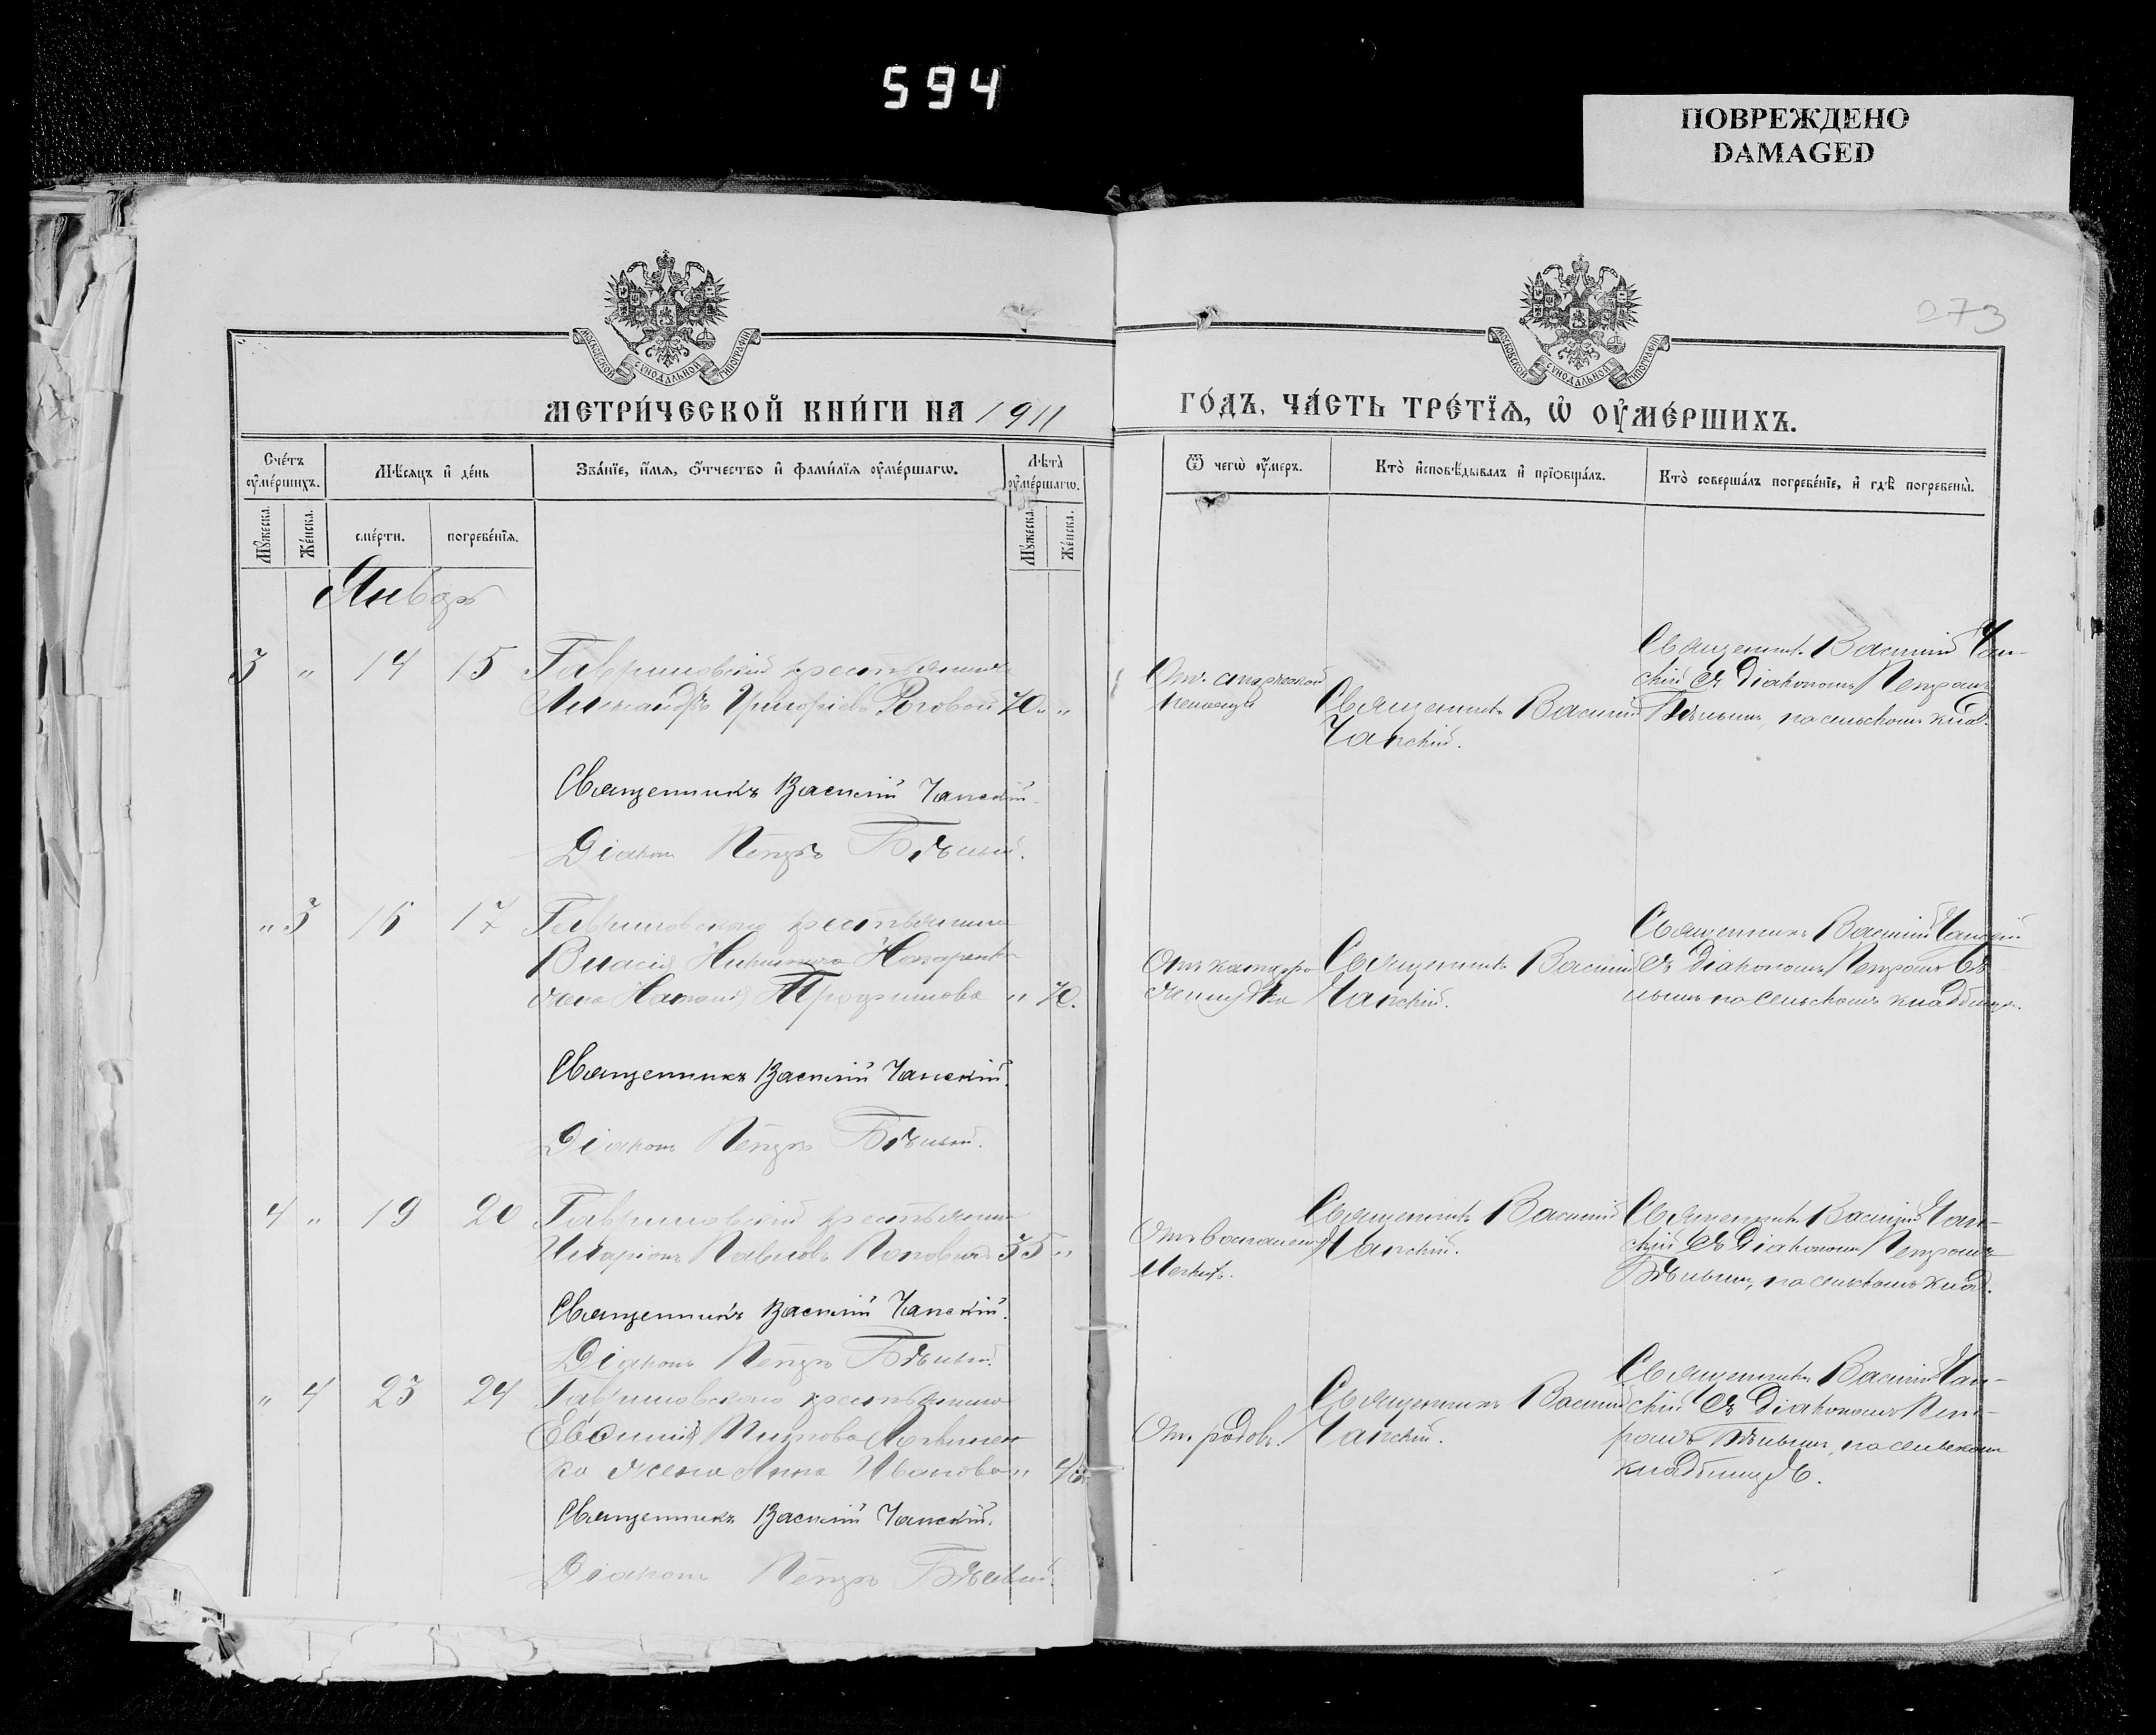 594
ПОВРЕЖДЕНО
DAMAGED
273
МОСКОВСКОЙ СѴНОДАЛЬНОЙ ТИПОГРАФІИ
МОСКОВСКОЙ СѴНОДАЛЬНОЙ ТИПОГРАФІИ
МЕТРИ́ЧЕСКОЙ КНИ́ГИ НА 1911
ГО́ДЪ, ЧА́СТЬ ТРЕ́ТІѦ, Ѡ҆ ОУ҆МЕ́РШИХЪ.
Сче́тъ оу҆ме́ршихъ.
Мѣ́сяцъ и҆ де́нь
Зва́нїе, и҆́мѧ, ѻ҆́тчество и҆ фами́лїѧ оу҆ме́ршагѡ.
Лѣта̀ оу҆ме́ршагѡ.
Ѿ чегѡ̀ оу҆́меръ.
Кто̀ и҆сповѣ́дывалъ и҆ прїѡбща́лъ.
Кто̀ соверша́лъ погребе́нїе, и҆ гдѣ̀ погребены̀.
Мꙋ́жеска.
Же́нска.
сме́рти.
погребе́нїѧ.
Мꙋ́жеска.
Же́нска.
Январь
3 " 14 15 Гавриловскій крестьянинъ
Александръ Григоріевъ Роговой 70 " "
Священникъ Василій Чапскій.
Діаконъ Петръ Бѣлый.
От старческой
Священникъ Василій
Чапскій.
Священникъ Василій Чап-
скій съ Діакономъ Петромъ
Бѣлымъ, на сельскомъ клад.
" 3 16 17 Гавриловскаго крестьянина
Власія Никитича
жена Наталія Трофимова " 70.
Священникъ Василій Чапскій.
Діаконъ Петръ Бѣлый.
Отъ катарра
желудка
Священникъ Василій
Чапскій.
Священникъ Василій Чапскій
съ Діакономъ Петромъ Бѣ-
лымъ на сельскомъ кладбищѣ.
4 " 19 20 Гавриловскій крестьянинъ
Иларіонъ Павловъ 35 "
Священникъ Василій Чапскій.
Діаконъ Петръ Бѣлый.
Отъ воспаленія
легкихъ.
Священникъ Василій
Чапскій.
Священникъ Василій Чап-
скій съ Діакономъ Петромъ
Бѣлымъ, на сельскомъ клад.
" 4 23 24 Гавриловскаго крестьянина
Евѳимія Литвинен-
ко жена Анна Иванова "
Священникъ Василій Чапскій.
Діаконъ Петръ Бѣлый.
Отъ родовъ.
Священникъ Василій
Чапскій.
Священникъ Василій Чап-
скій съ Діакономъ Пет-
ромъ Бѣлымъ, на сельскомъ
кладбищѣ.